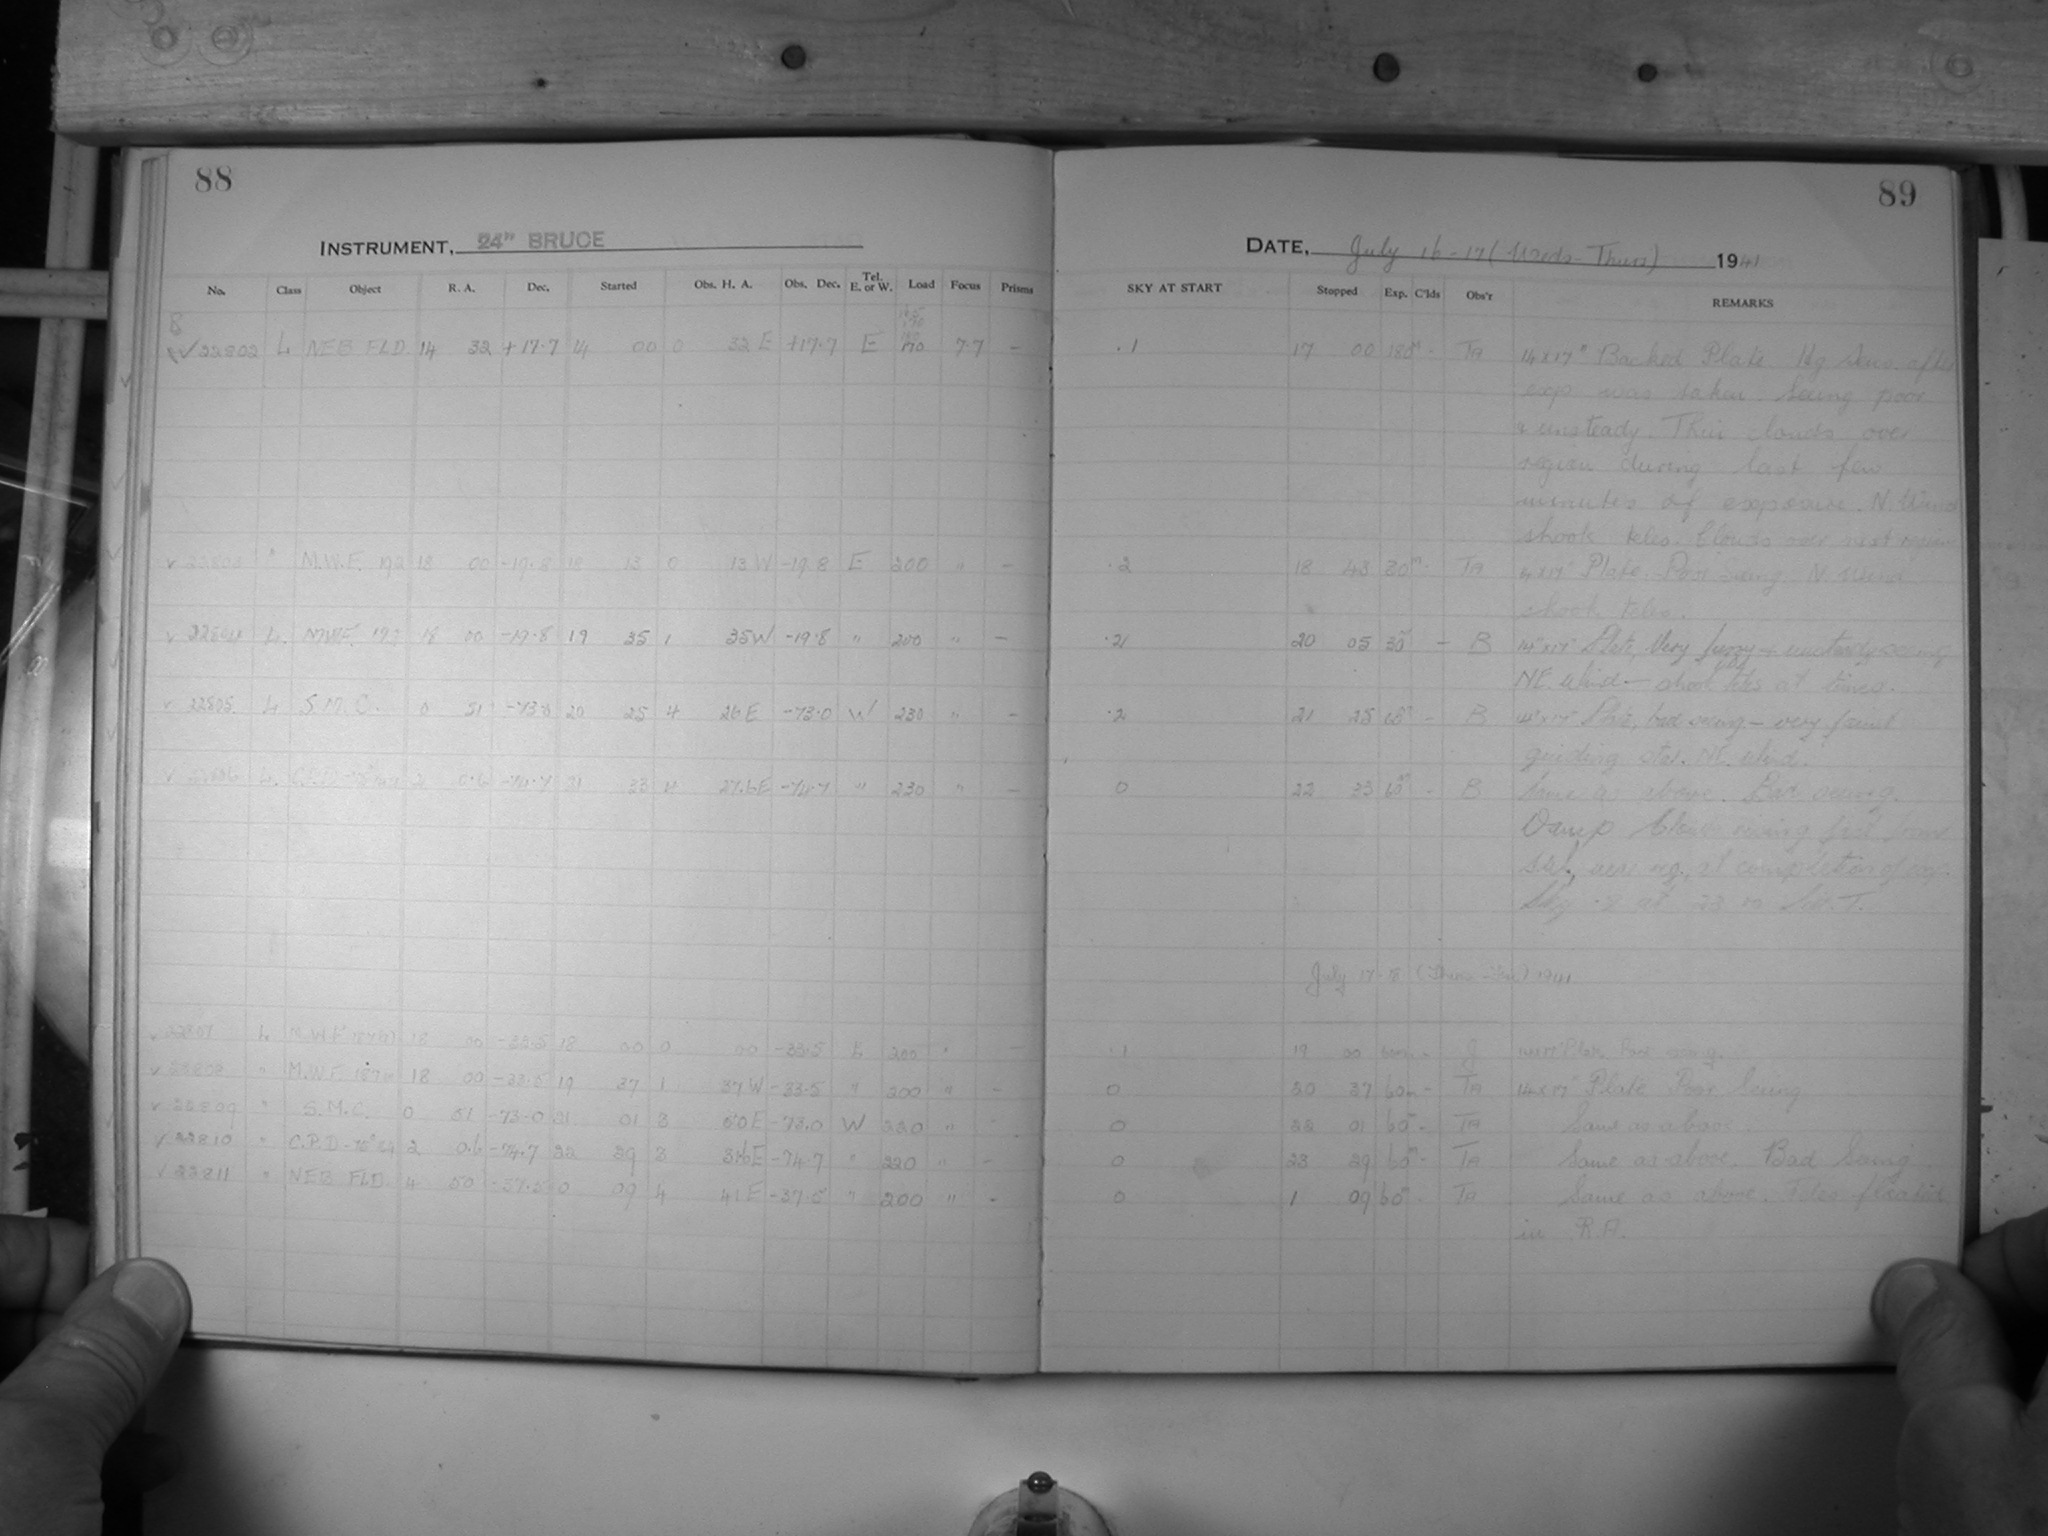 88
INSTRUMENT, 24" BRUCE
No. Class Object R. A. Dec. Started Obs. H. A. Obs. Dec. Tel. E. or W. Load Focus Prisms
8
22802 L NEB FLD. 14 32 +17.7 14 00 0 32 E +17.7 E 170 7.7 –
22803 " M.W.F. 192 18 00 -19.8 18 13 0 13 W -19.8 E 200 " –
22804 L. MWF. 192 18 00 -19.8 19 35 1 35W -19.8 " 200 " –
22805 L S.M.C. 0 51 -73.0 20 25 4 26E -73.0 W 230 " –
22806 L. C.P.D. 2 0.6 -74.7 21 33 4 27.6E -74.7 " 230 " –
22807 L M.W.F. 18 00 -33.5 18 00 0 00 -33.5 E 200 " –
22808 " M.W.F. 18 00 -33.5 19 37 1 37 W -33.5 " 200 " –
22809 " S.M.C. 0 51 -73.0 21 01 3 50E -73.0 W 220 "
22810 " C.P.D. 2 0.6 -74.7 22 29 3 31.6E -74.7 " 220 " –
22811 " NEB FLD. 4 50 -37.5 0 09 4 41E -37.5 " 200 " -
89
DATE, July 16-17 (Weds-Thurs) 1941
SKY AT START Stopped Exp. C'lds Obs'r REMARKS
.1 17 00 180m - TA 14x17" Backed Plate Hg Sens. after
exp was taken. Seeing poor
& unsteady. Thin clouds over
region during last few
minutes of exposure. N. Wind
shook teles. Clouds over next region
.2 18 43 30m - TA 14x17" Plate. Poor seeing. N. Wind
shook teles.
.2 20 05 30m – B 14"x17" Plate, Very fuzzy + unsteady seeing
NE. Wind – shook teles at times.
.2 21 25 60m – B 14"x17" Plate, bad seeing – very faint
guiding star. NE. Wind.
0 22 33 60m - B Same as above. Bad seeing.
Damp Clouds moving fast from
at completion of exp.
Sky at 23
July 17-18 (Thurs-Fri) 1941
.1 19 00 60m - J 14x17" Plate. Poor seeing.
0 20 37 60m - TA 14x17" Plate Poor Seeing
0 22 01 60m - TA Same as above.
0 23 29 60m - TA Same as above. Bad Seeing
0 1 09 60m - TA Same as above. Teles
in R.A.